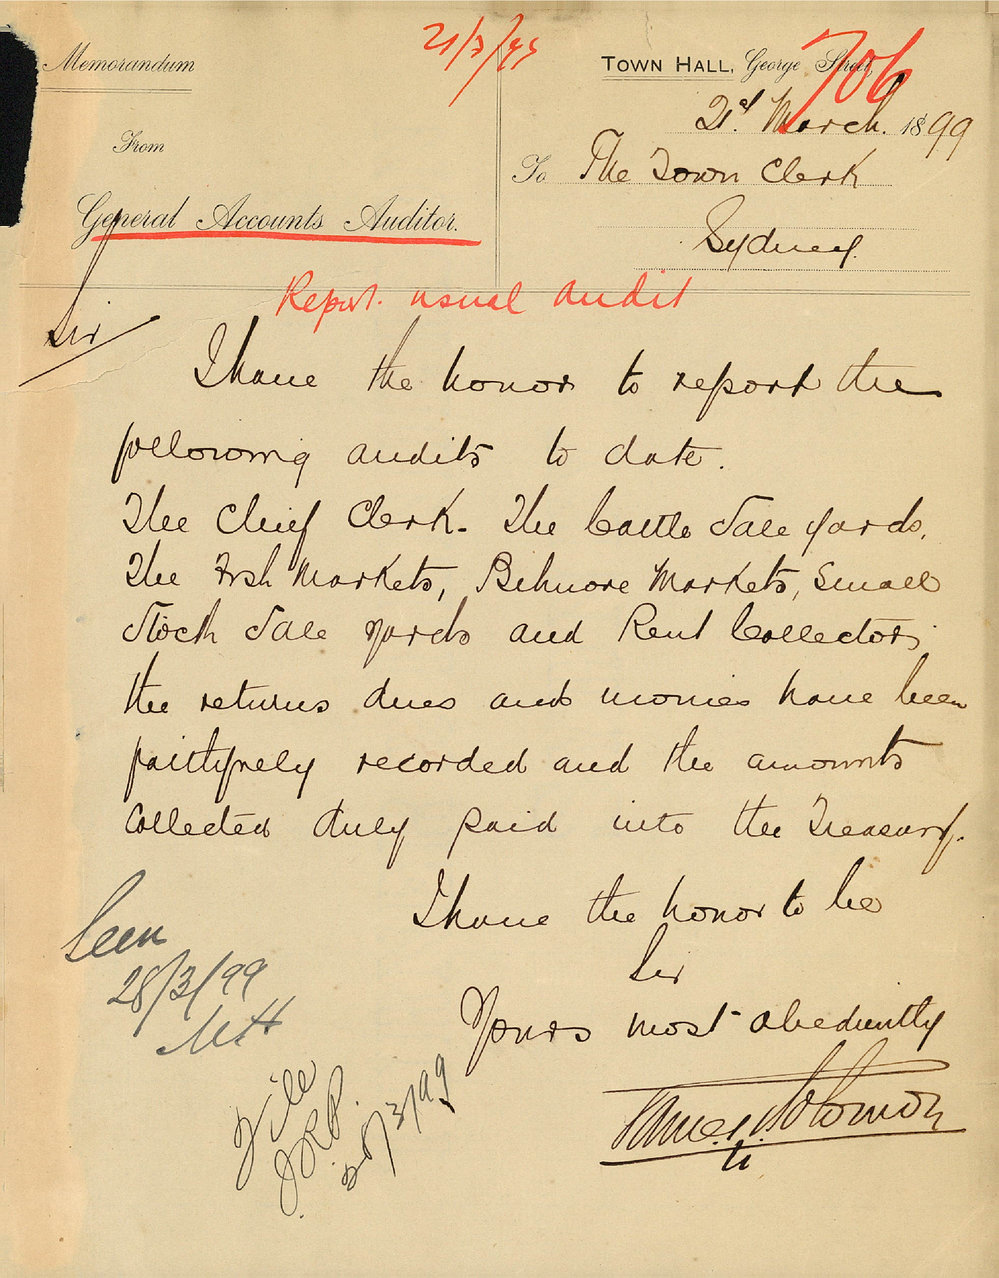 Memorandum
21/3/99
TOWN HALL, George Street,
706
21st March. 1899
From
To The Town Clerk
General Accounts Auditor.
Sydney.
Report. usual audit
Sir
I have the honor to report the
following audits to date.
The Chief Clerk. The Cattle Sale yards,
The Fish Markets, Belmore Markets, Small
Stock Sale Yards and Rent Collectors,
the returns dues and monies have been
faithfully recorded and the amounts
collected duly paid into the Treasury.
I have the honor to be
Sir
Yours most obediently
James Solomon
Seen
28/3/99
File
28/3/99